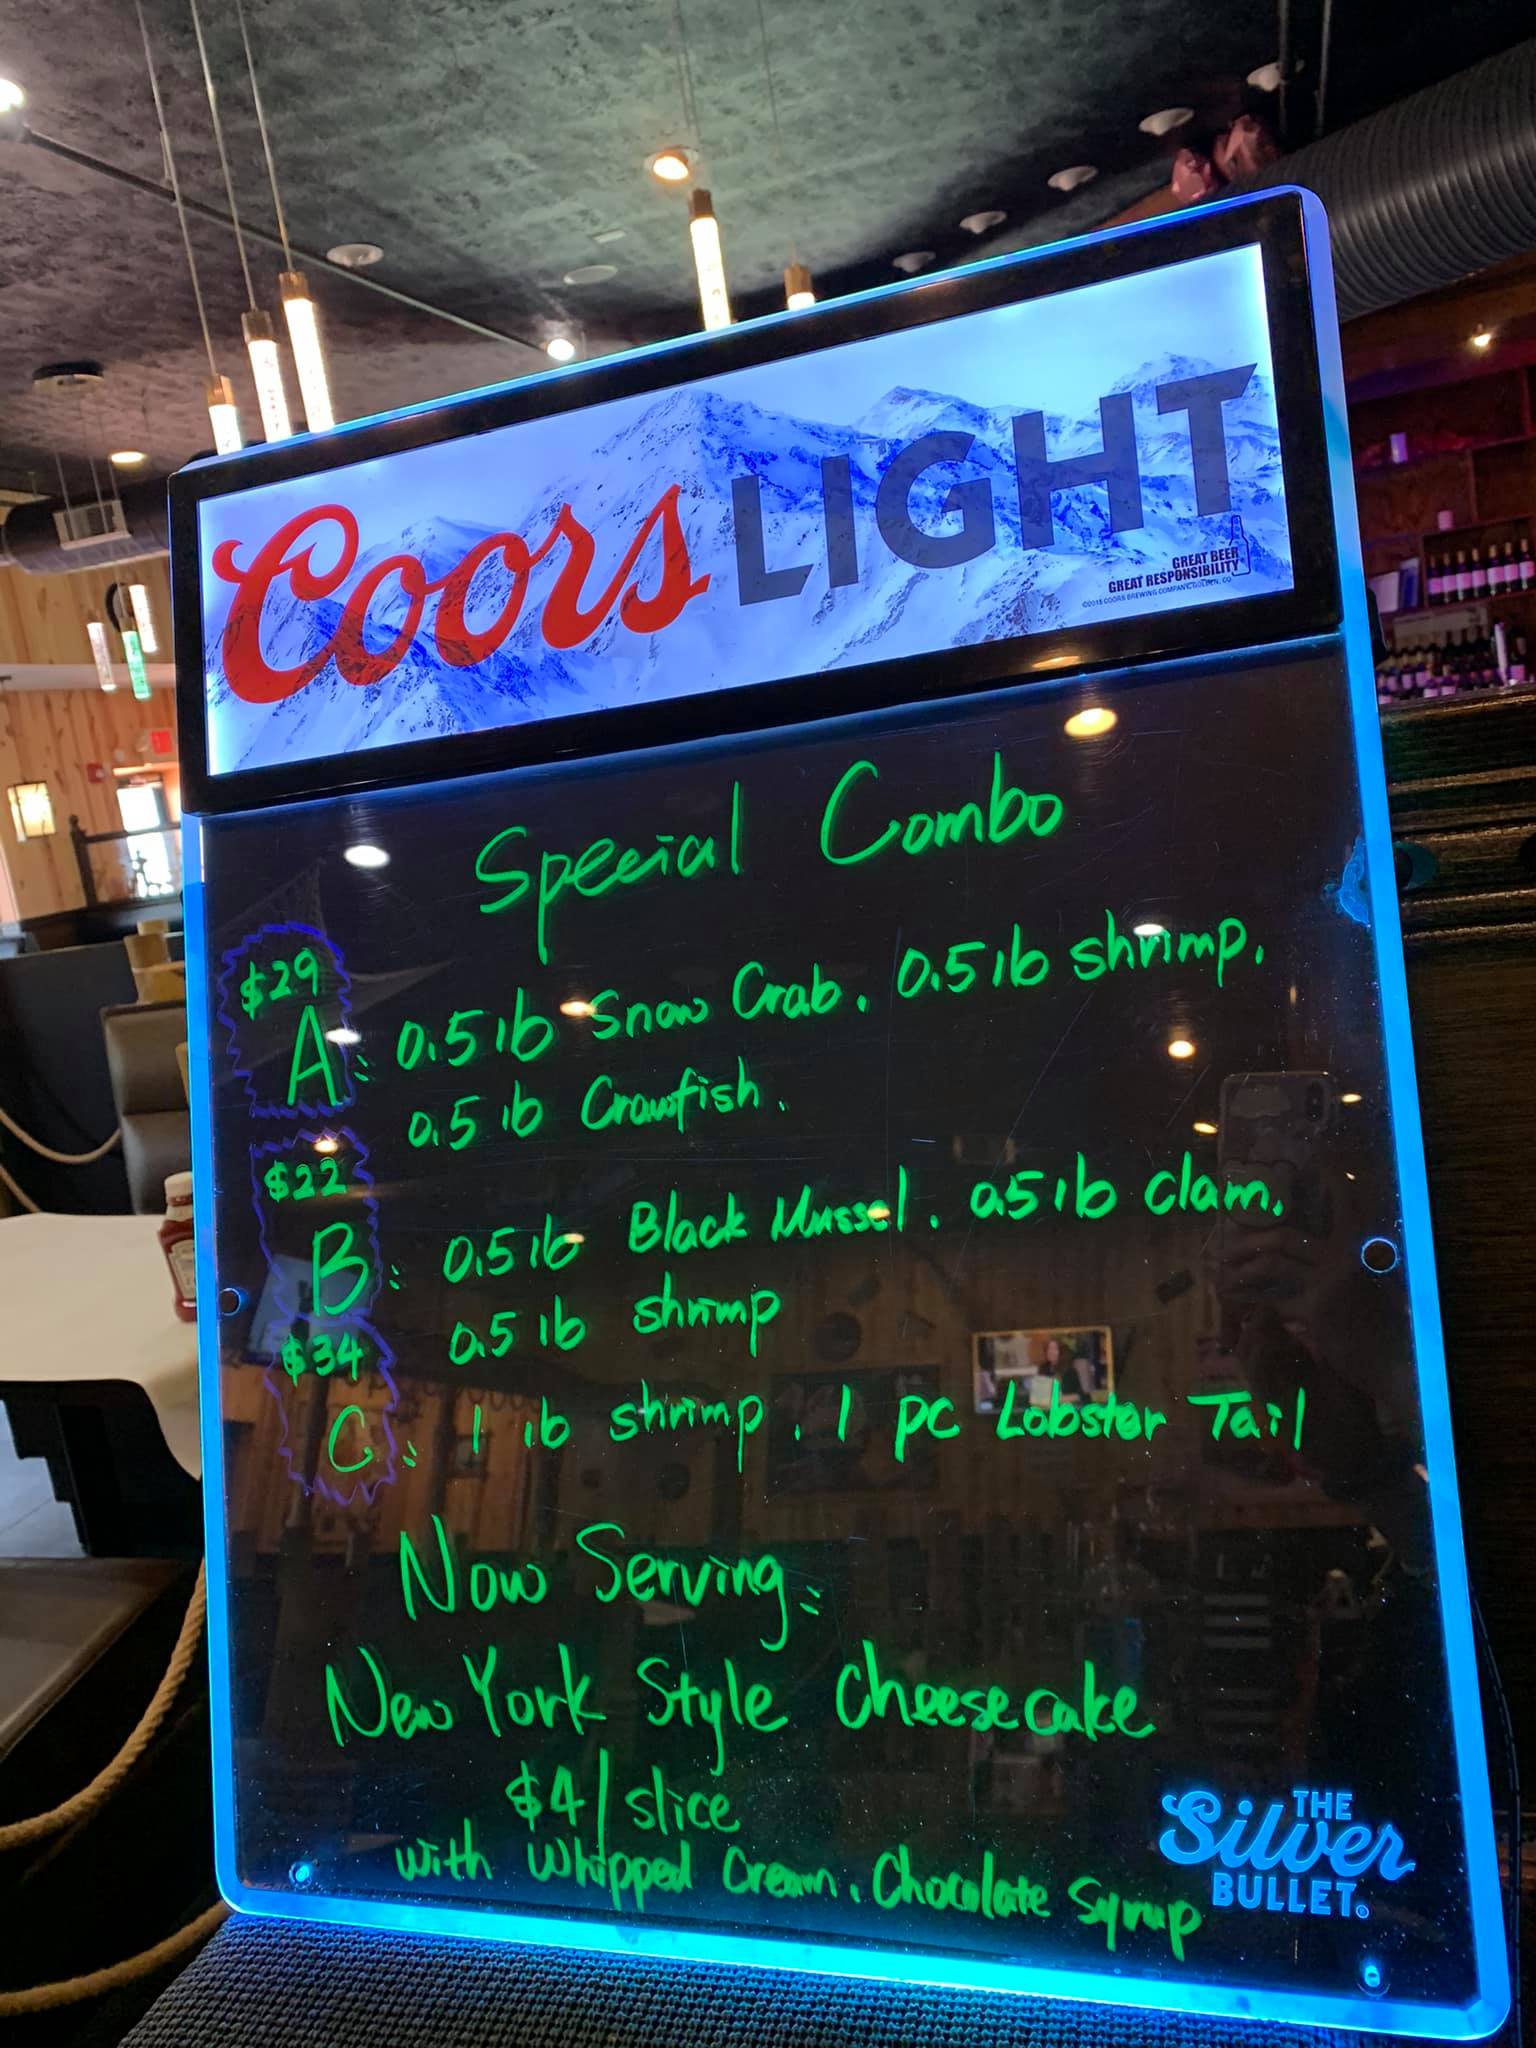 Coors LIGHT
GREAT BEER
GREAT RESPONSIBILITY
©2015 COORS BREWING COMPANY, GOLDEN, CO
Special Combo
$29
A: 0.5 lb Snow Crab. 0.5 lb shrimp.
0.5 lb Crawfish.
$22
B: 0.5 lb Black Mussel. 0.5 lb clam.
0.5 lb shrimp
$34
C: 1 lb shrimp. 1 pc Lobster Tail
Now Serving:
New York Style Cheesecake
$4/slice
with Whipped Cream. Chocolate Syrup
THE
Silver
BULLET®